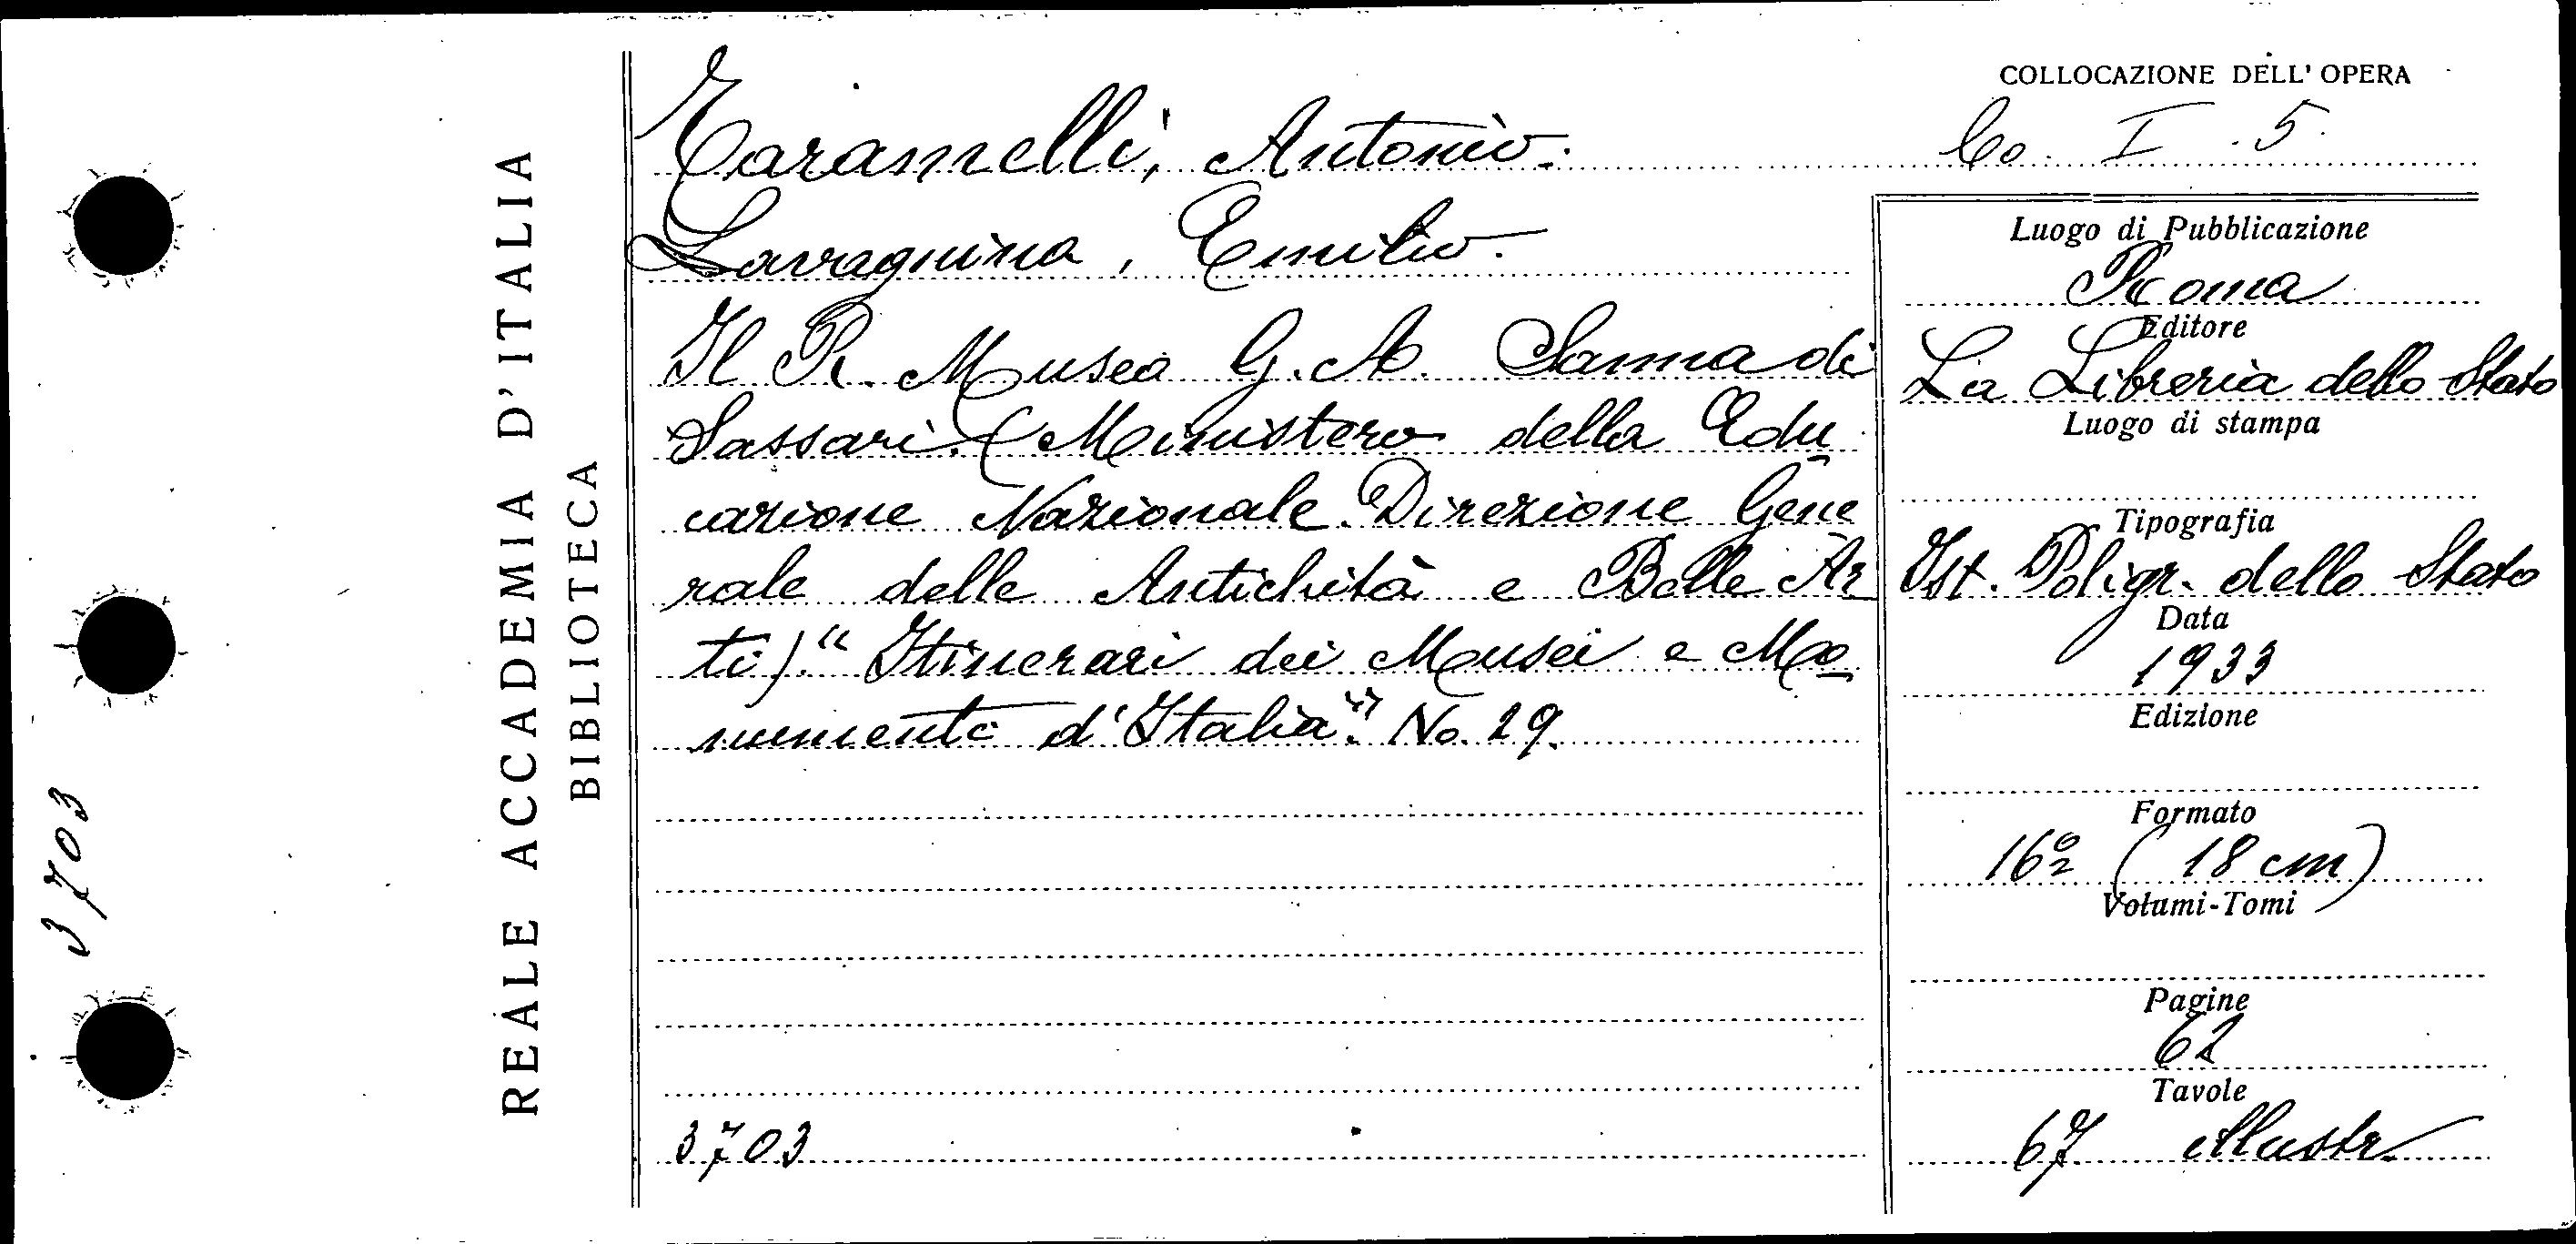 REALE ACCADEMIA D'ITALIA
BIBLIOTECA
3703
Taramelli, Antonio.
Lavagnina, Emilio.
Il R. Museo G. A. Sanna di
Sassari. (Ministero della Edu
cazione Nazionale. Direzione Gene
rale delle Antichità e Belle Ar
ti). "Itinerari dei Musei e Mo
numenti d'Italia". No. 29.
3703
COLLOCAZIONE DELL'OPERA
Co. I. 5.
Luogo di Pubblicazione
Roma
Editore
La Libreria dello Stato
Luogo di stampa
Tipografia
Ist. Poligr. dello Stato
Data
1933
Edizione
Formato
16º (18 cm)
Volumi-Tomi
Pagine
62
Tavole
67 illustr.